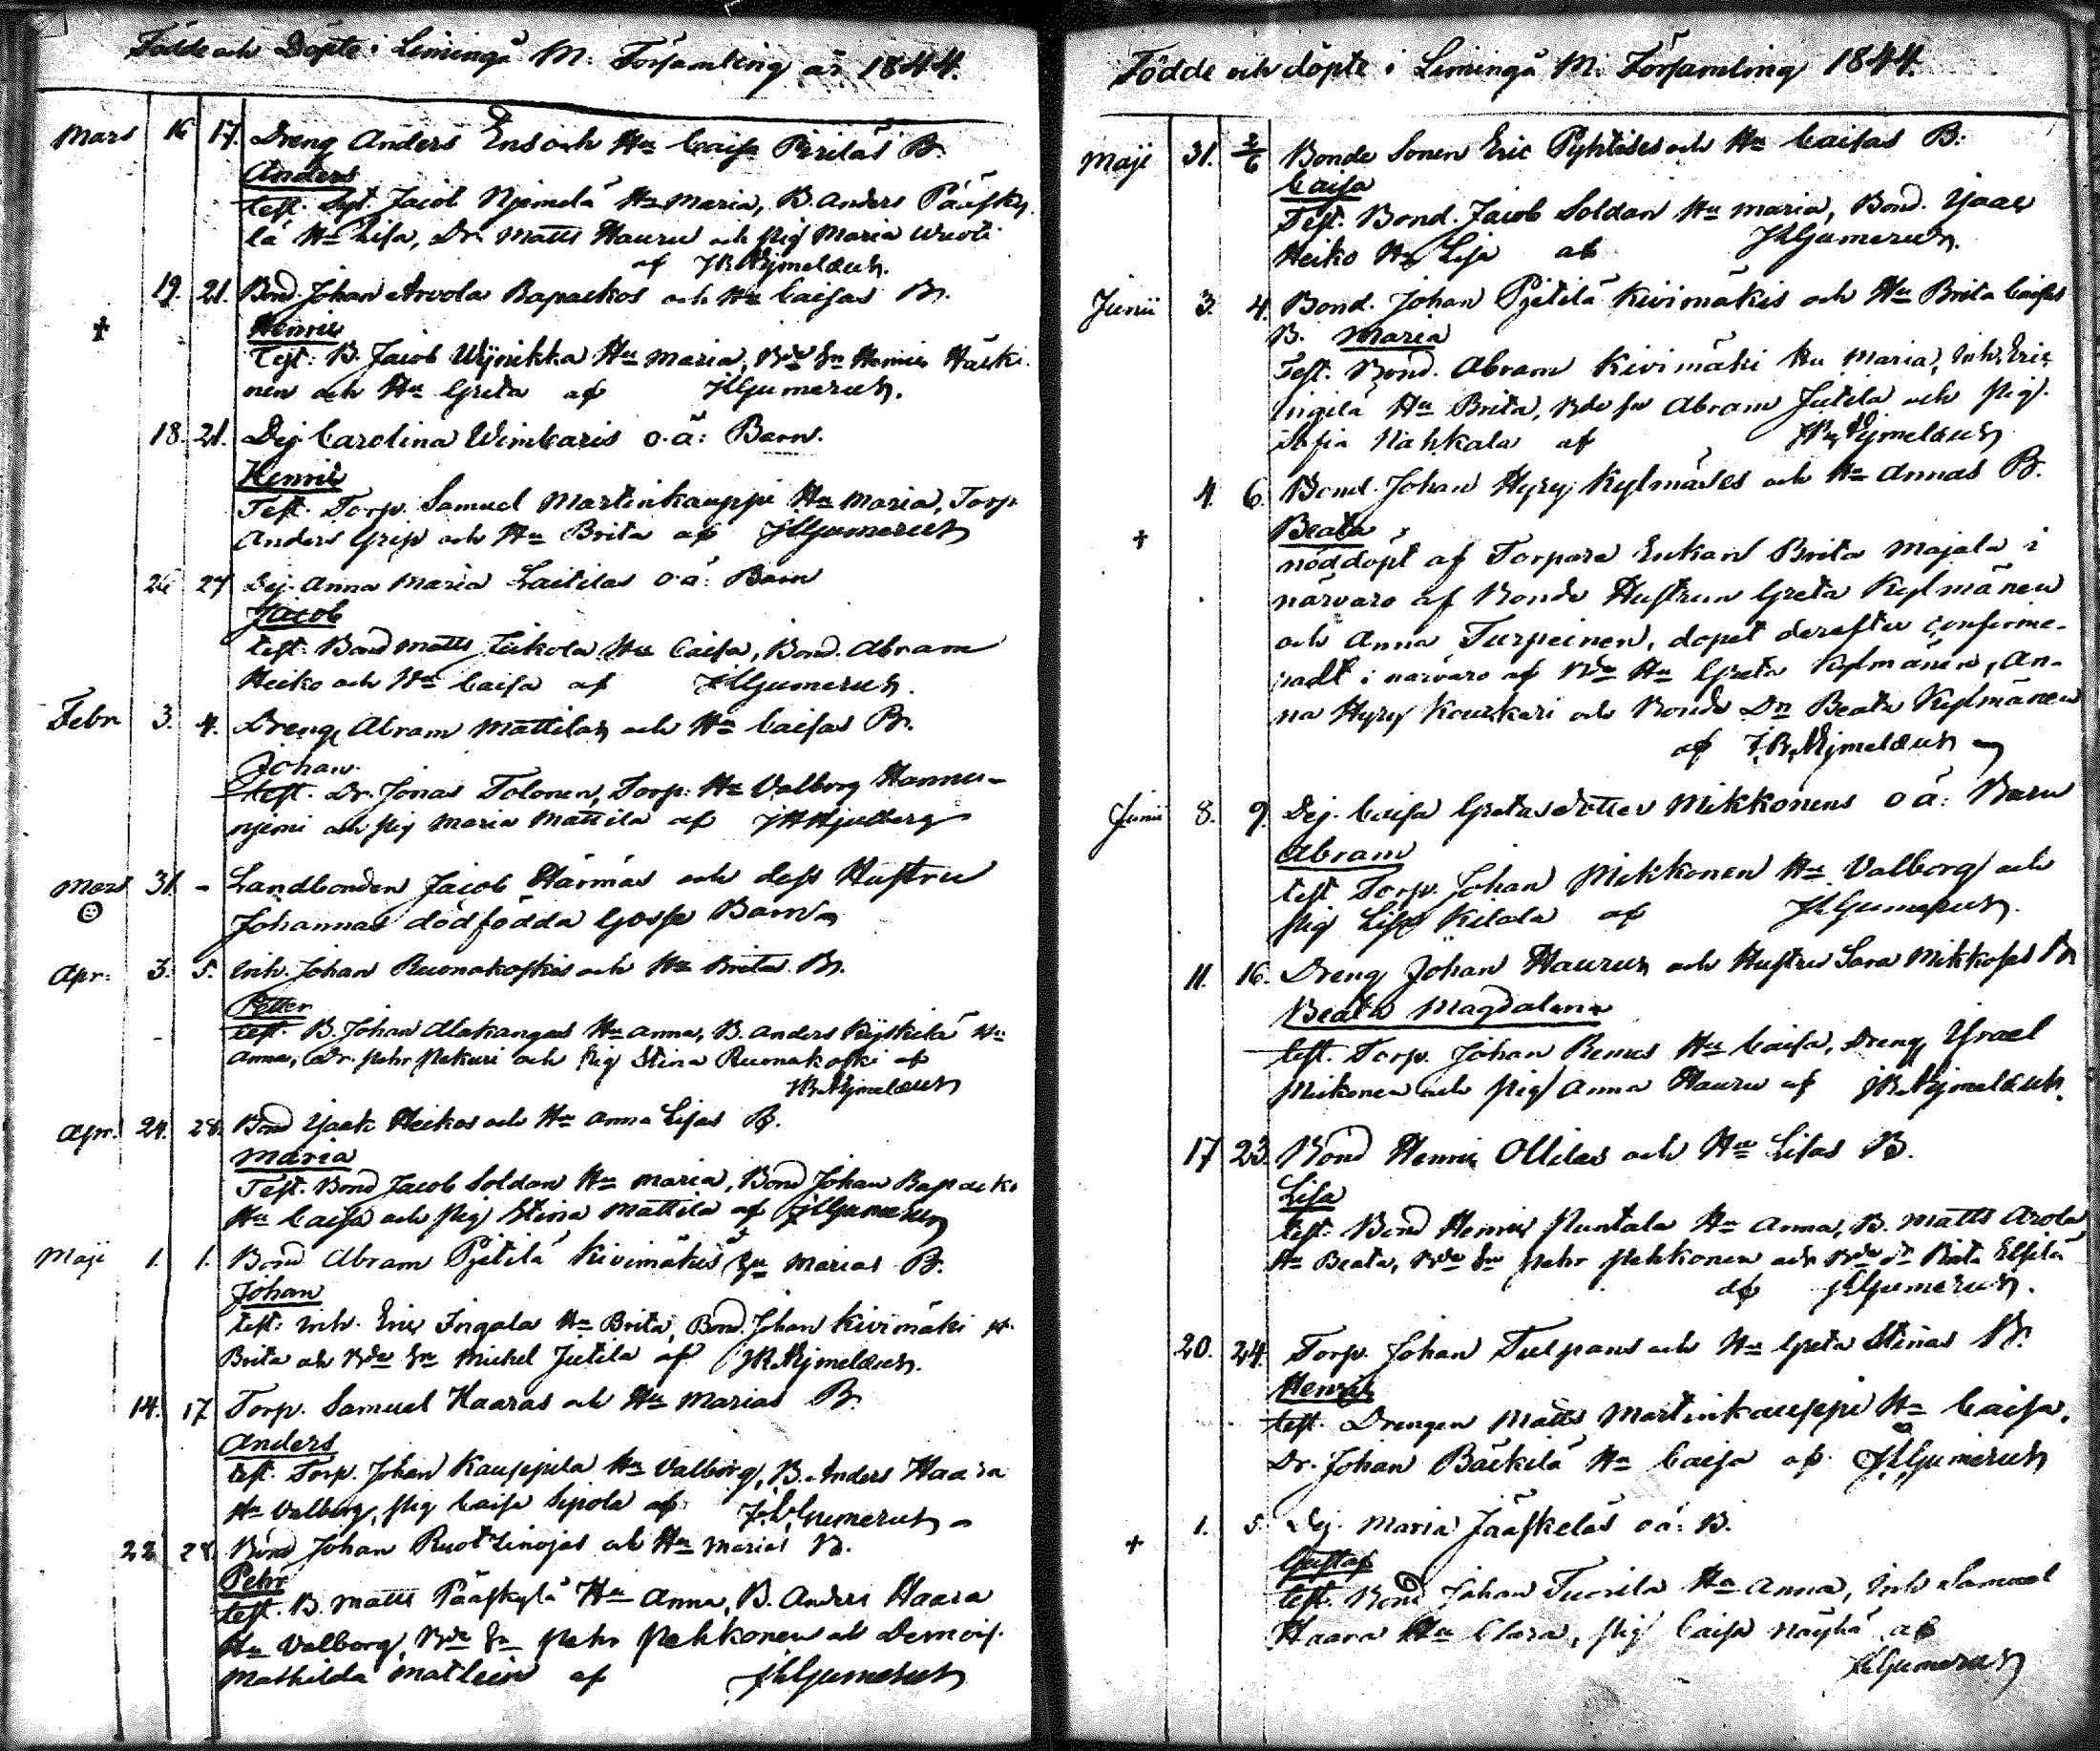 Födde och Döpte i Limingå M. Församling år 1844.
Mars 16 17. Dreng Anders Ens och Hu Caisa Piriläs B.
Anders
test. Jacob Njemelä Hu Maria, B. Anders Pääsky-
lä Hu Lisa, Dr. Matts Hauru och pig Maria
af
19. 21. Bond. Johan Arvola Rapaekos och Hu Caisas B.
† Henric
Test: B. Jacob Wÿnikka Hu Maria, Bde Sn Henric Härki-
nen och Hu Greta af JGumerus.
18. 21. Dej. Carolina Wimbaris o. ä: Barn.
Henric
Test. Torp. Samuel Martinkauppi Hu Maria, Torp
Anders Grip och Hu Brita af JGumerus
26 27 Dej. Anna Maria Laitilas o ä: Barn
Jacob
test. Bond Matts Hu Caisa, Bond. Abram
Heiko och Hu Caisa af JGumerus.
Febr 3. 4. Dreng Abram Mattilas och Hu Caisas B.
Johan.
test. Dr. Jonas Tolonen, Torp: Hu Valborg Hannu-
njemi och pig Maria Mattila af
Mars 31. - Landbonden Jacob Härmäs och dess Hustru
Johannas dödfödda Gosse Barn
Apr: 3. 5. Inh. Johan Ruonakoskis och Hu Britas B.
Petter
test. B. Johan Alakangas Hu Anna, B. Anders Ryskilä Hu
Anna, Dr. Pehr Pekuri och pig Stina Ruonakoski af
Apr. 24. 28. Bond Isaak Heikos och Hu Anna Lisas B.
Maria
Test. Bond Jacob Soldan Hu Maria, Bond Johan Rapaeko
Hu Caisa och pig Stina Mattila af JGumerus
Maji 1. 1. Bond Abram Pjetilä Kivimäkis Hu Marias B.
Johan
test: Inh. Eric Ingala Hu Brita, Bond. Johan Kivimäki H.
Brita och Bde Sn Michel Jutila af
14. 17 Torp. Samuel Haaras och Hu Marias B.
Anders
test. Torp. Johan Kauppila Hu Valborg, B. Anders Haara
Hu Valborg, pig Caisa Sipola af JGumerus
22 28. Bond Johan Ruotzinojas och Hu Marias B.
Pehr
test. B. Matts Pääskylä Hu Anna, B. Anders Haara
Hu Valborg, Bde Sn Pehr Pehkonen och Demois.
Mathilda Matlein af JGumerus
Födde och döpte i Limingå M. Församling 1844.
Maji 31. 2/6 Bonde Sonen Eric och Hu Caisas B.
Caisa
Test. Bond. Jacob Soldan Hu Maria, Bond. Isaac
Heiko Hu Lisa af JGumerus.
Junii 3. 4. Bond. Johan Pjetilä Kivimäkis och Hu Brita Caisas
B. Maria
Test. Bond. Abram Kivimäki Hu Maria, Inh. Eric
Ingilä Hu Brita, Bde sn Abram Jutila och pig.
Sofia Nahkala af
4. 6. Bond. Johan Hyry Kylmäses och Hu Annas B.
† Beata
nöddöpt af Torpare Enkan Brita Majala i
närvaro af Bonde Hustrun Greta Kylmänen
och Anna Turpeinen, dopet derefter confirme-
radt i närvaro af Bde Hu Greta Kylmänen, An-
na Hyry Kourkari och Bonde Dn Beata Kylmänen
af
Junii 8. 9. Dej. Caisa Gretas dotter Mikkonens o ä: Barn
Abram
test Torp. Johan Mikkonen Hu Valborg och
pig Lisa Kilala af JGumerus.
11. 16. Dreng Johan Haurus och Hustru Sara Mikkos B
Beata Magdalena
test. Torp. Johan Remes Hu Caisa, Dreng Israel
Mikonen och pig Anna Hauru af
17 23. Bond Henric Ollilas och Hu Lisas B.
Lisa
test: Bond Henric Puntala Hu Anna, B. Matts Arola
Hu Beata, Bde Sn Pehr Pehkonen och Bde dn Brita Elsilä
af JGumerus.
20. 24. Torp. Johan Tulpans och Hu Greta Stinas B.
Henric
test. Drengen Matts Martinkauppi Hu Caisa,
Dr. Johan Bäckilä Hu Caisa af JGumerus
† 1. 5. Dej. Maria Jääskeläs o ä: B.
Gustaf
test. Bond Johan Tuorila Hu Anna, Inh Samuel
Haara Hu Clara, pig Caisa Näyhä af
JGumerus